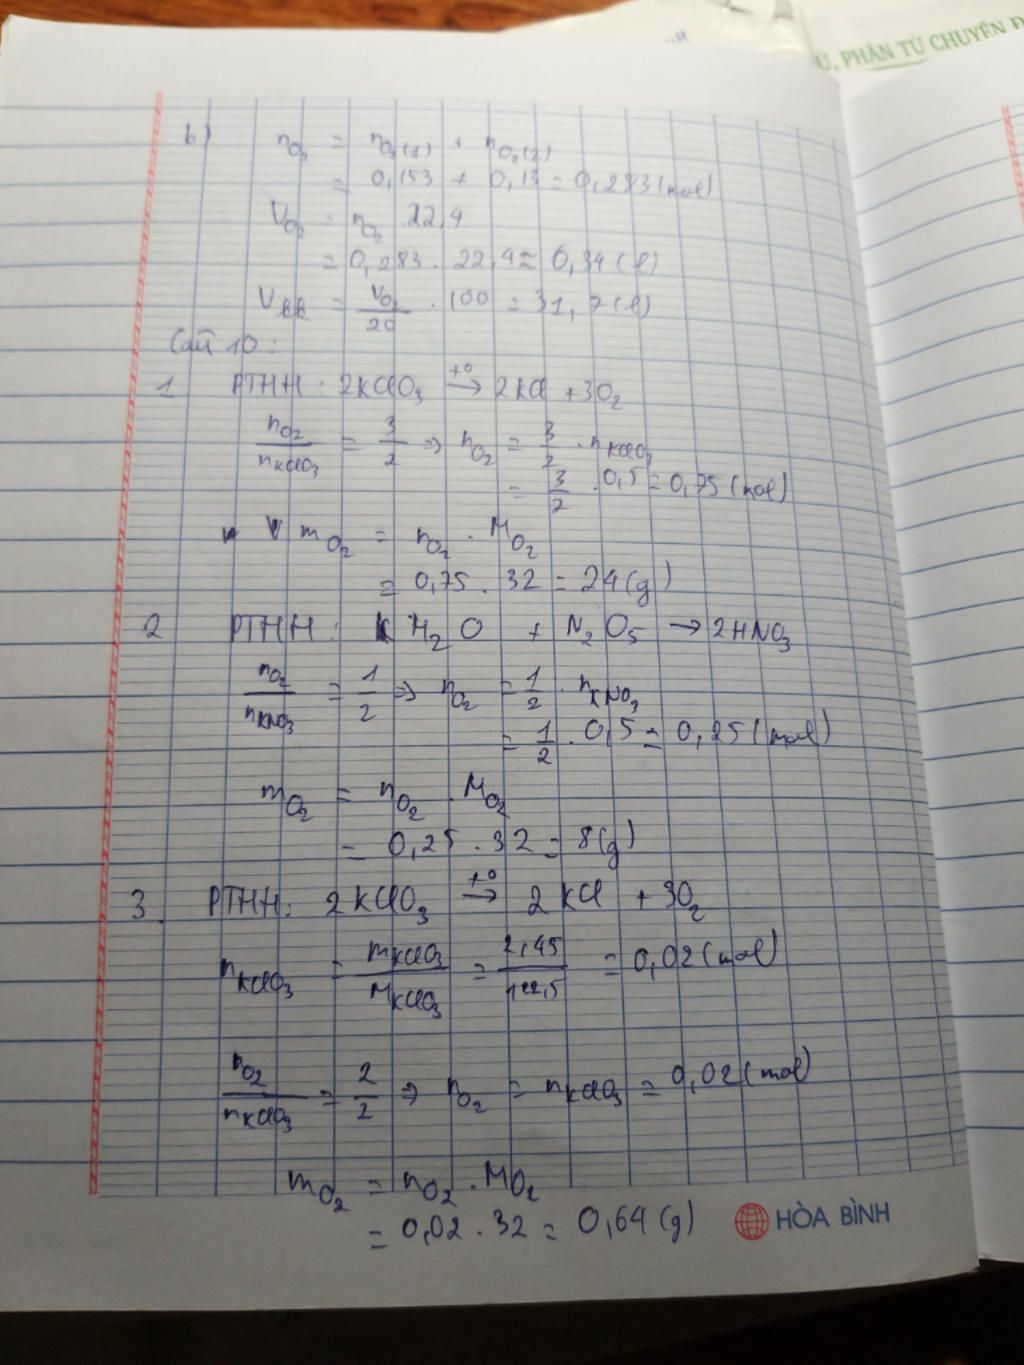 Ử, PHÂN TỬ CHUYỂN Đ
b) nO₂ = nO₂(1) + nO₂(2)
= 0,153 + 0,13 = 0,283 (mol)
VO₂ = nO₂ . 22,4
= 0,283 . 22,4 = 6,34 (l)
VKK = VO₂/20 . 100 = 31,7 (l)
Câu 10:
1. PTHH: 2KClO₃ →(t°) 2KCl + 3O₂
nO₂/nKClO₃ = 3/2 ⇒ nO₂ = 3/2 . nKClO₃
= 3/2 . 0,5 = 0,75 (mol)
mO₂ = nO₂ . MO₂
= 0,75 . 32 = 24 (g)
2 PTHH: H₂O + N₂O₅ → 2HNO₃
nO₂/nKNO₃ = 1/2 ⇒ nO₂ = 1/2 . nKNO₃
= 1/2 . 0,5 = 0,25 (mol)
mO₂ = nO₂ . MO₂
= 0,25 . 32 = 8 (g)
3. PTHH: 2KClO₃ →(t°) 2KCl + 3O₂
nKClO₃ = mKClO₃/MKClO₃ = 2,45/122,5 = 0,02 (mol)
nO₂/nKClO₃ = 2/2 ⇒ nO₂ = nKClO₃ = 0,02 (mol)
mO₂ = nO₂ . MO₂
= 0,02 . 32 = 0,64 (g)
HÒA BÌNH